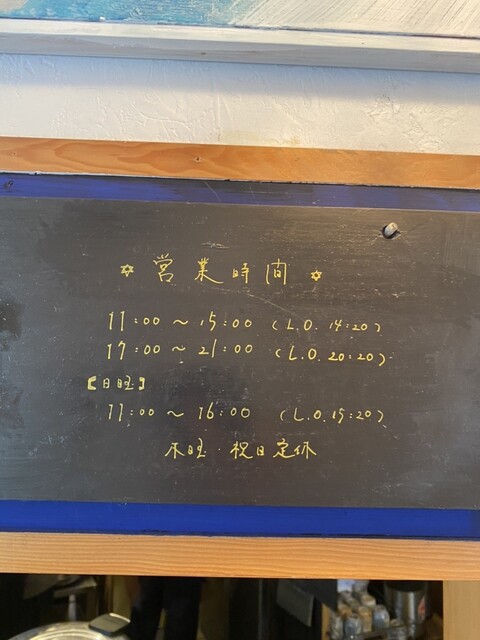 ✡ 営業時間 ✡
11:00 ～ 15:00 (L.O. 14:20)
17:00 ～ 21:00 (L.O. 20:20)
【日旺】
11:00 ～ 16:00 (L.O. 15:20)
木旺・祝日定休